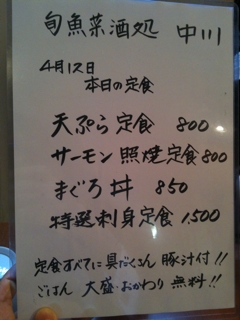 旬魚菜酒処 中川
4月12日
本日の定食
天ぷら定食 800
サーモン照焼定食 800
まぐろ丼 850
特選刺身定食 1,500
定食すべてに具だくさん 豚汁付!!
ごはん 大盛・おかわり 無料!!